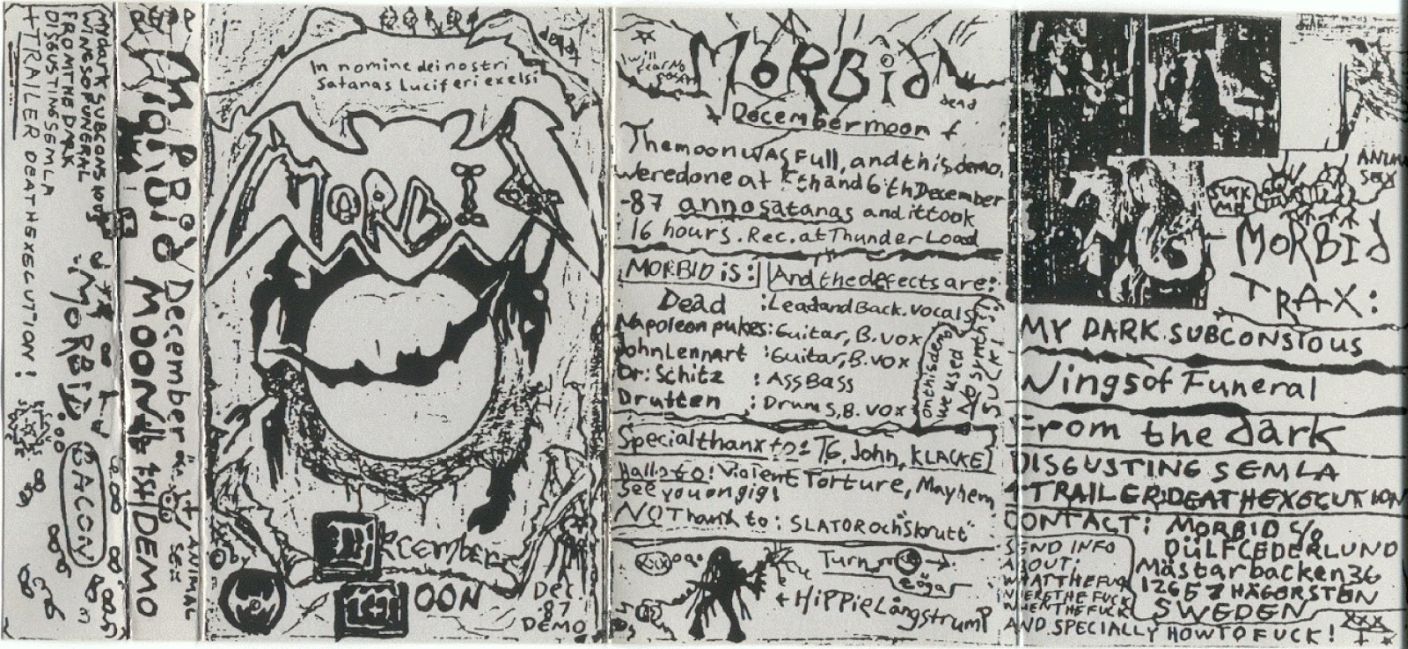 MY dark SUBCONS
WINGSOFUNERAL
FROMTHE DARK
DISGUSTINGSEMLA
+TRAILER DEATHEXECUTION!
MORBID
BACON
MORBID December
MOON 1st DEMO
ANIMAL
SEX
In nomine deinostri
Satanas Luciferi exelsi
MORBID
December
MOON
Dec
87
DEMO
MORBid
dead
+ December moon +
The moon WAS Full, and this demo,
were done at 5th and 6th December
-87 anno satanas and it took
16 hours. Rec. at Thunder Load
MORBID is: And the defects are:
Dead : Lead and Back. vocals
Napoleon pukes: Guitar, B. vox
John Lennart : Guitar, B. vox
Dr. Schitz : Ass Bass
Drutten : Drums, B. vox
on this demo
we used
No synths!
SUCK!
Special thanx to: T6, John, KLACKE
Hallo to! Violent Torture, Mayhem,
see you on gig!
NO Thanx to: SLATOR och "Skrutt"
Turn
+ HiPPie Långstrump
ANIMAL
SEX
SUCK
ME
MORBID
TRAX:
MY DARK. SUBCONSTOUS
Wings of Funeral
From the dark
DISGUSTING SEMLA
+TRAILER: DEATHEXECUTION
CONTACT: MORBID c/o
DÜLFCEDERLUND
Mästarbacken 36
12657 HÄGERSTEN
SWEDEN
SEND INFO
ABOUT:
WHAT THE FUCK
WHERE THE FUCK
WHEN THE FUCK
AND SPECIALLY HOW TO FUCK!
XXX